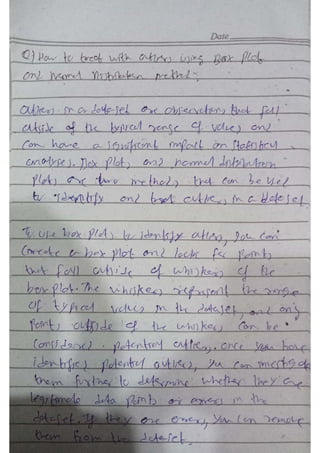 Date
Q) How to treat with outliers using Box plot
and normal Distribution method;
outliers in a dataset are observations that fall
outside of the typical range of values and
can have a significant impact on statistical
analyses. Box plots and normal distribution
plots are two methods that can be used
to identify and treat outliers in a dataset.
To use box plots to identify outliers, you can
create a box plot and look for points
that fall outside of whiskers of the
box plot. The whiskers represent the range
of typical values in the dataset, and any
points outside of the whiskers can be
considered potential outliers. once you have
identified potential outliers, you can investigate
them further to determine whether they are
legitimate data points or errors in the
dataset. If they are errors, you can remove
them from the dataset.